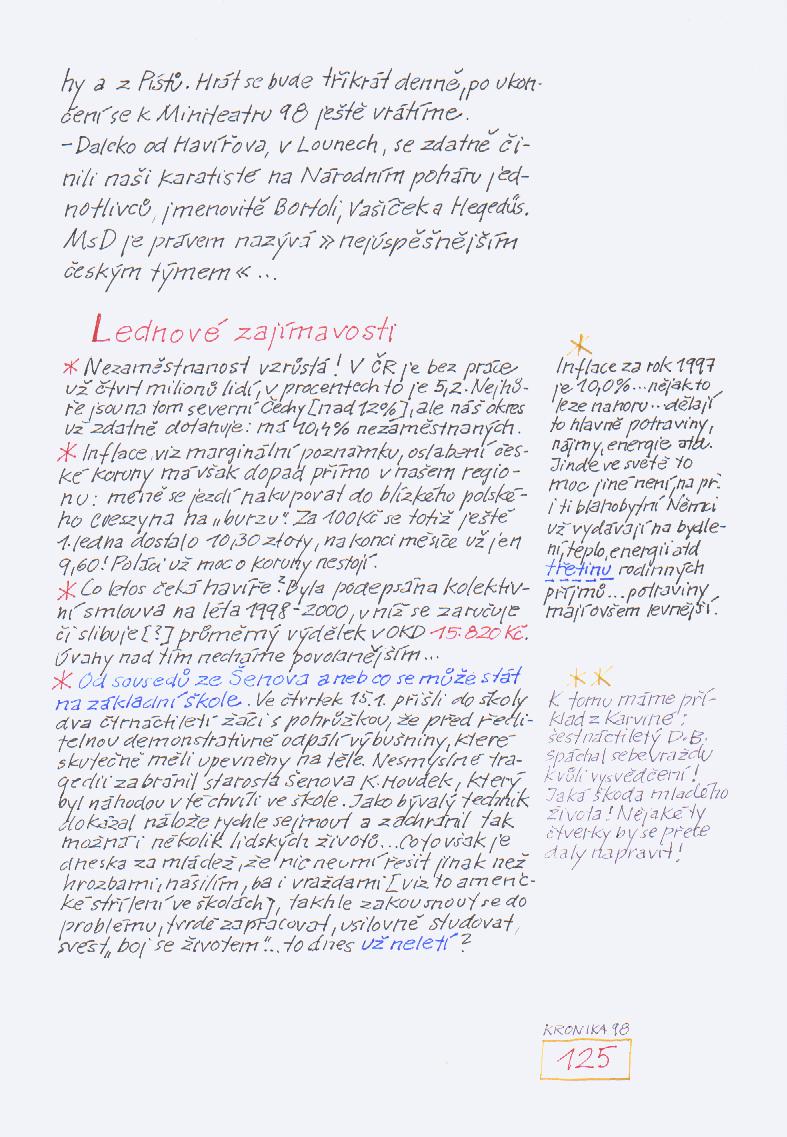 hy a z Pístů. Hrát se bude třikrát denně, po ukon-
čení se k Miniteatru 98 ještě vrátíme.
- Daleko od Havířova, v Lounech, se zdatně či-
nili naši karatisté na Národním poháru jed-
notlivců, jmenovitě Bortoli, Vašíček a Hegedűs.
MsD je právem nazývá »nejúspěšnějším
českým týmem« ...
Lednové zajímavosti
* Nezaměstnanost vzrůstá! V ČR je bez práce
už čtvrt milionů lidí, v procentech to je 5,2. Nejhů-
ře jsou na tom severní Čechy [nad 12%], ale náš okres
už zdatně dotahuje: má 10,4% nezaměstnaných.
* Inflace, viz marginální poznámku, oslabení čes-
ké koruny má však dopad přímo v našem regio-
nu: méně se jezdí nakupovat do blízkého polské-
ho Cieszyna na „burzu". Za 100 Kč se totiž ještě
1. ledna dostalo 10,30 zloty, na konci měsíce už jen
9,60! Poláci už moc o koruny nestojí.
* Co letos čeká havíře? Byla podepsána kolektiv-
ní smlouva na léta 1998-2000, v níž se zaručuje
či slibuje [?] průměrný výdělek v OKD 15.820 Kč.
Úvahy nad tím necháme povolanějším...
* Od sousedů ze Šenova aneb co se může stát
na základní škole. Ve čtvrtek 15.1. přišli do školy
dva čtrnáctiletí žáci s pohrůžkou, že před ředi-
telnou demonstrativně odpálí výbušniny, které
skutečně měli upevněny na těle. Nesmyslné tra-
gedii zabránil starosta Šenova K. Houdek, který
byl náhodou v té chvíli ve škole. Jako bývalý technik
dokázal nálože rychle sejmout a zachránil tak
možná i několik lidských životů... Co to však je
dneska za mládež, že nic neumí řešit jinak než
hrozbami, násilím, ba i vraždami [viz to americ-
ké střílení ve školách], takhle zakousnout se do
problému, tvrdě zapracovat, usilovně studovat,
svést „boj se životem"... to dnes už neletí?
*
Inflace za rok 1997
je 10,0%... nějak to
leze nahoru... dělají
to hlavně potraviny,
nájmy, energie atd.
Jinde ve světě to
moc jiné není, na př.
i ti blahobytní Němci
už vydávají na bydle-
ní, teplo, energii atd
třetinu rodinných
příjmů... potraviny
mají ovšem levnější.
**
K tomu máme pří-
klad z Karviné:
šestnáctiletý D.B.
spáchal sebevraždu
kvůli vysvědčení!
Jaká škoda mladého
života! Nějaké ty
čtverky by se přece
daly napravit!
KRONIKA 98
125